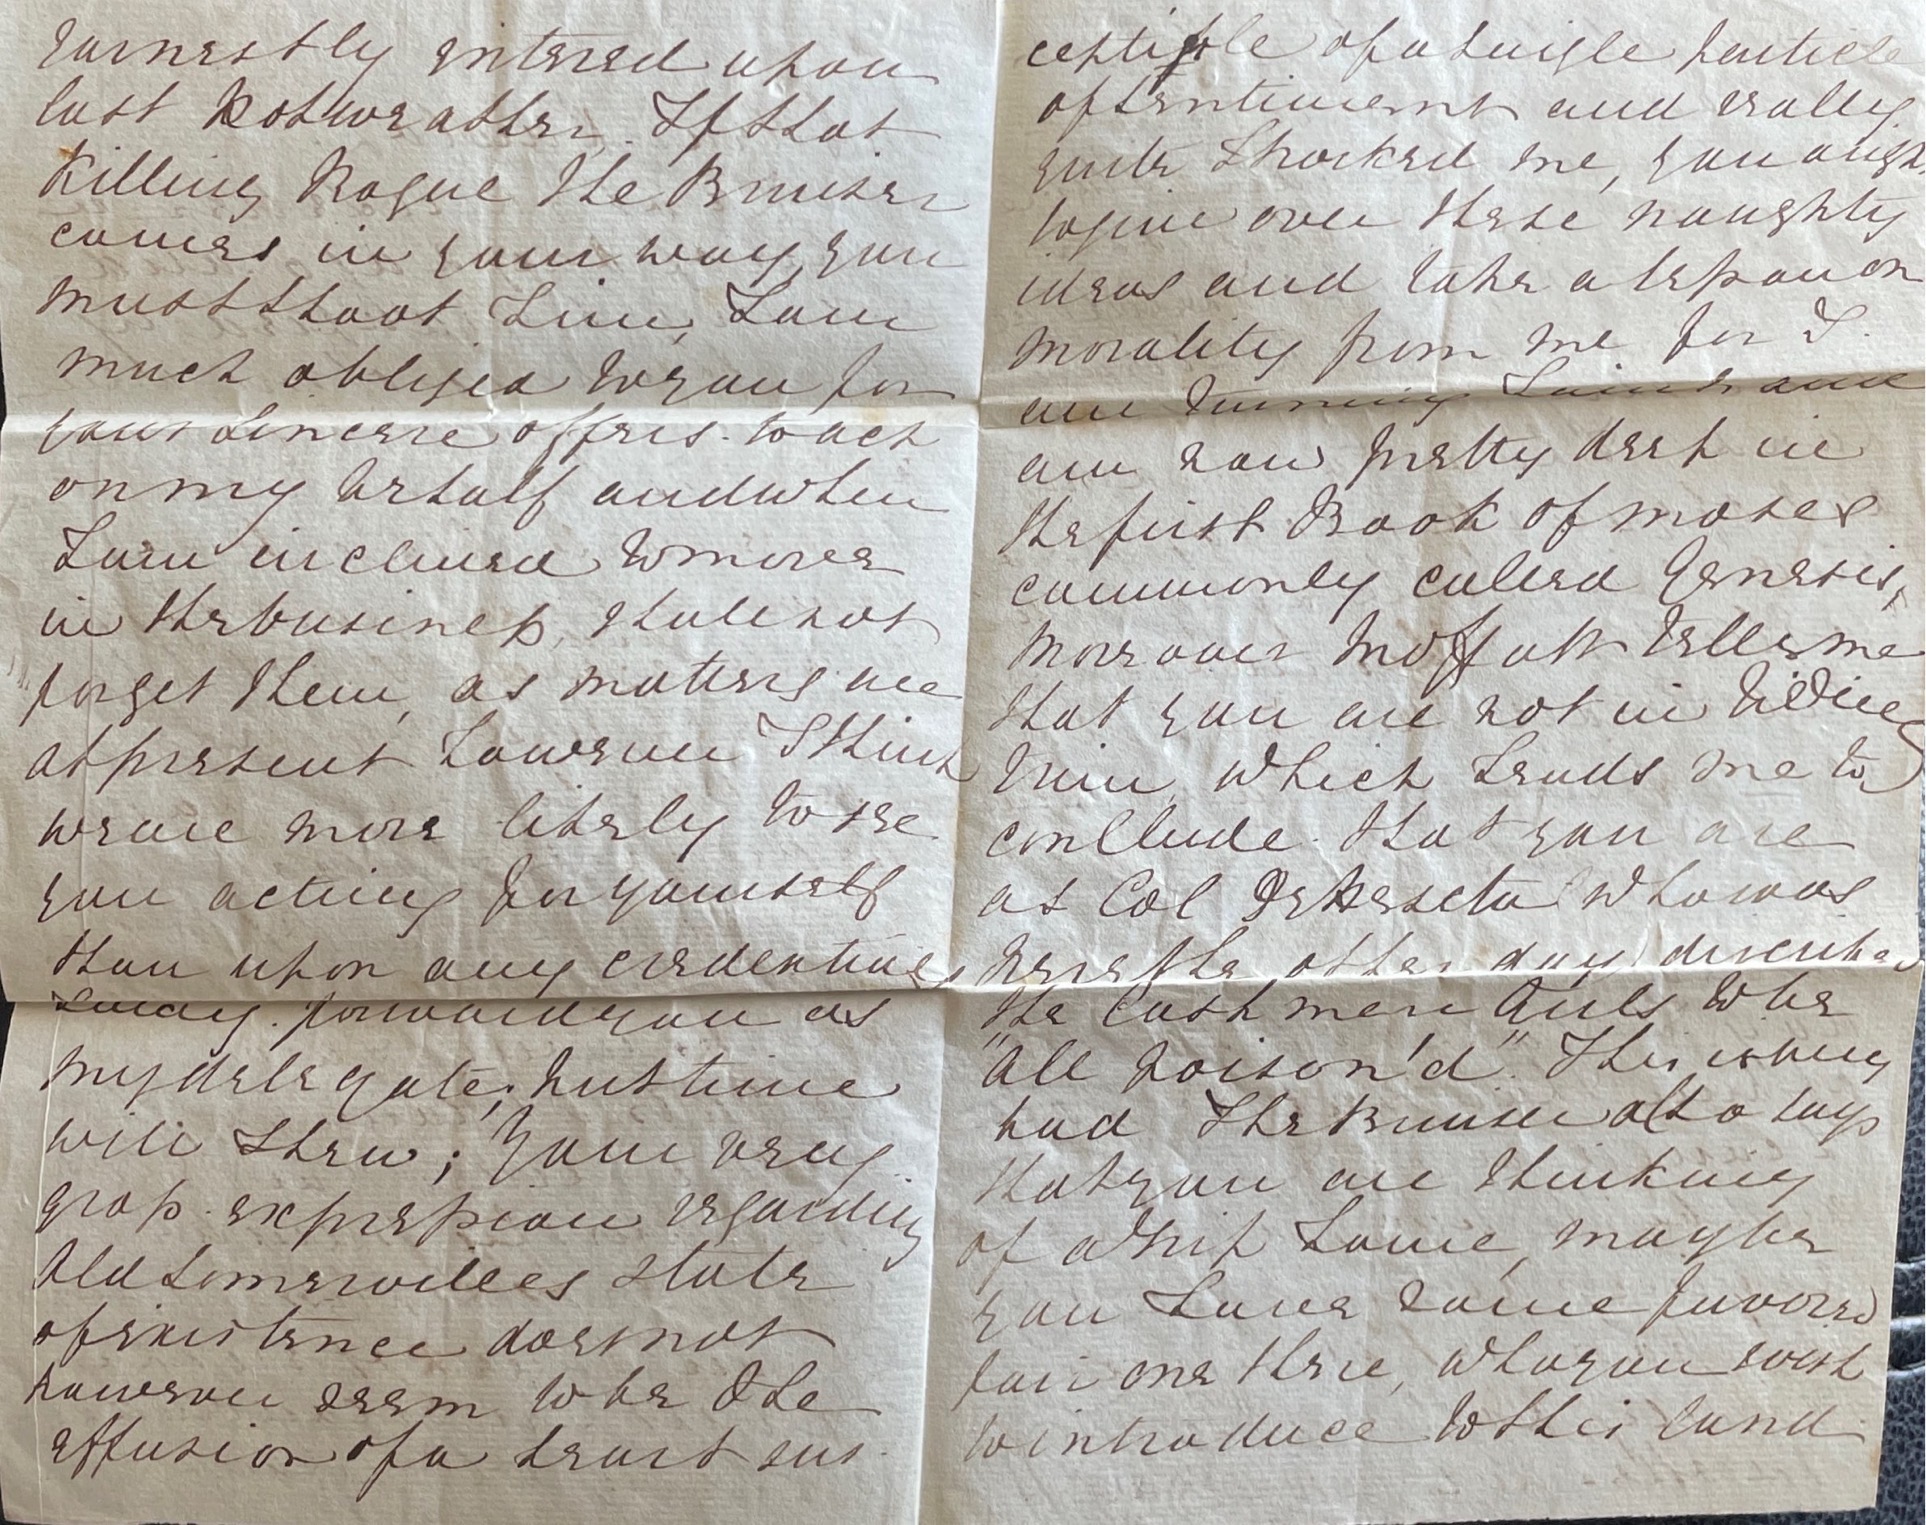 earnestly entered upon
last hot weather. If that
killing Rogue the Bruiser
comes in your way, you
must shoot him, I am
much obliged to you for
your sincere offers to act
on my behalf and when
I am inclined to move
in the business, shall not
forget them, as matters are
at present however I think
we are more likely to see
you acting for yourself
than upon any credentials
I may forward you as
my delegate, but time
will shew; Your very
gross expression regarding
Old Somervilles state
of existence does not
however seem to be the
effusion of a heart sus-
ceptible of a single particle
of sentiment and really
quite shocked me, you ought
to give over these naughty
ideas and take a lesson on
morality from me for I
am turning Saint and
am now pretty deep in
the first Book of Moses
commonly called Genesis,
moreover Moffatt tells me
that you are not in riding
trim, which leads me to
conclude that you are
as Col who was
here the other day described
the Cashmere Girls to be
"All poison'd". This is very
bad The Bruiser also says
that you are thinking
of a trip home, maybe
you have some favored
fair one there, who you wish
to introduce to this land